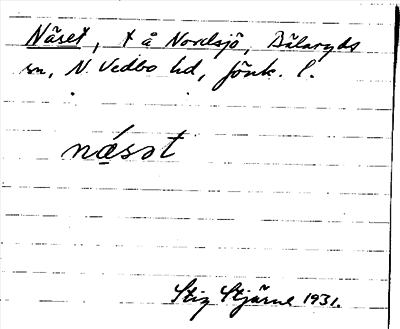 Näset, t å Nordsjö, Bälaryds
sn, N. Vedbo hd, Jönk. l.
näsət
Stig Stjärne 1931.